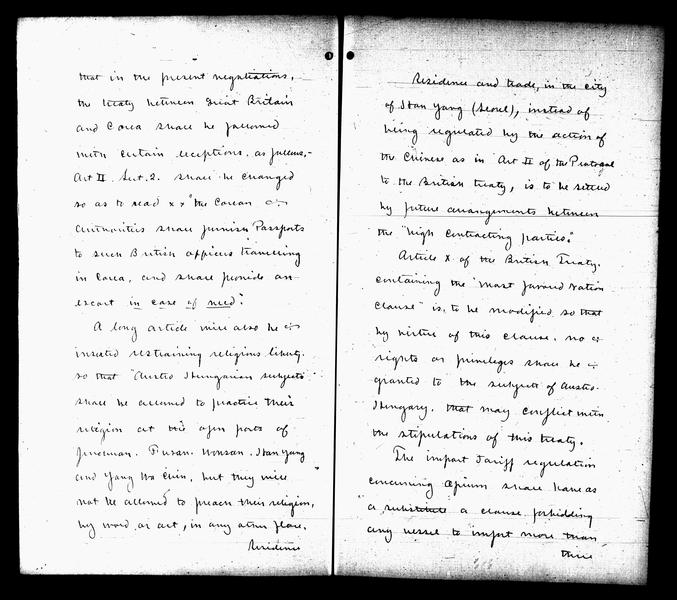 that in the present negotiations,
the treaty between Great Britain
and Corea shall be followed
with certain exceptions, as follows,-
Art II. Sect. 2. shall be changed
so as to read x x "the Corean
authorities shall furnish Passports
to such British officers travelling
in Corea, and shall provide an
escort in case of need".
A long article will also be
inserted restraining religious liberty.
so that "Austro Hungarian subjects
shall be allowed to practice their
religion at the open ports of
Jenchuan. Fusan. Wonsan. Han Yang
and Yang Wha Chin, but they will
not be allowed to preach their religion,
by word, or act, in any other place."
Residence
Residence and trade, in the city
of Han Yang (Seoul), instead of
being regulated by the action of
the Chinese as in Art II of the Protocol
to the British treaty, is to be settled
by future arrangements between
the "high contracting parties".
Article X. of the British Treaty.
containing the "most favored nation
clause" is, to be modified so that
by virtue of this clause, no
rights or privileges shall be
granted to the subjects of Austro-
Hungary. that may conflict with
the stipulations of this treaty.
The import Tariff regulation
concerning opium shall have as
a substitute a clause forbidding
any vessel to import more than
three